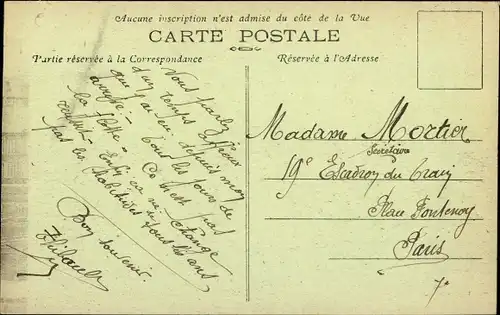 Aucune inscription n'est admise du côté de la Vue
CARTE POSTALE
Partie réservée à la Correspondance
Réservée à l'Adresse
Vous parlez
d'un temps affreux
que j'ai eu depuis mon
arrivée
la fête tous les jours de
Ce n'est pas
Enfin ça ne change
pas les habitudes tous les ans
Bon souvenir
Madame Mortier
Secrétaire
19e Escadron du train
Place Fontenoy
Paris
7e